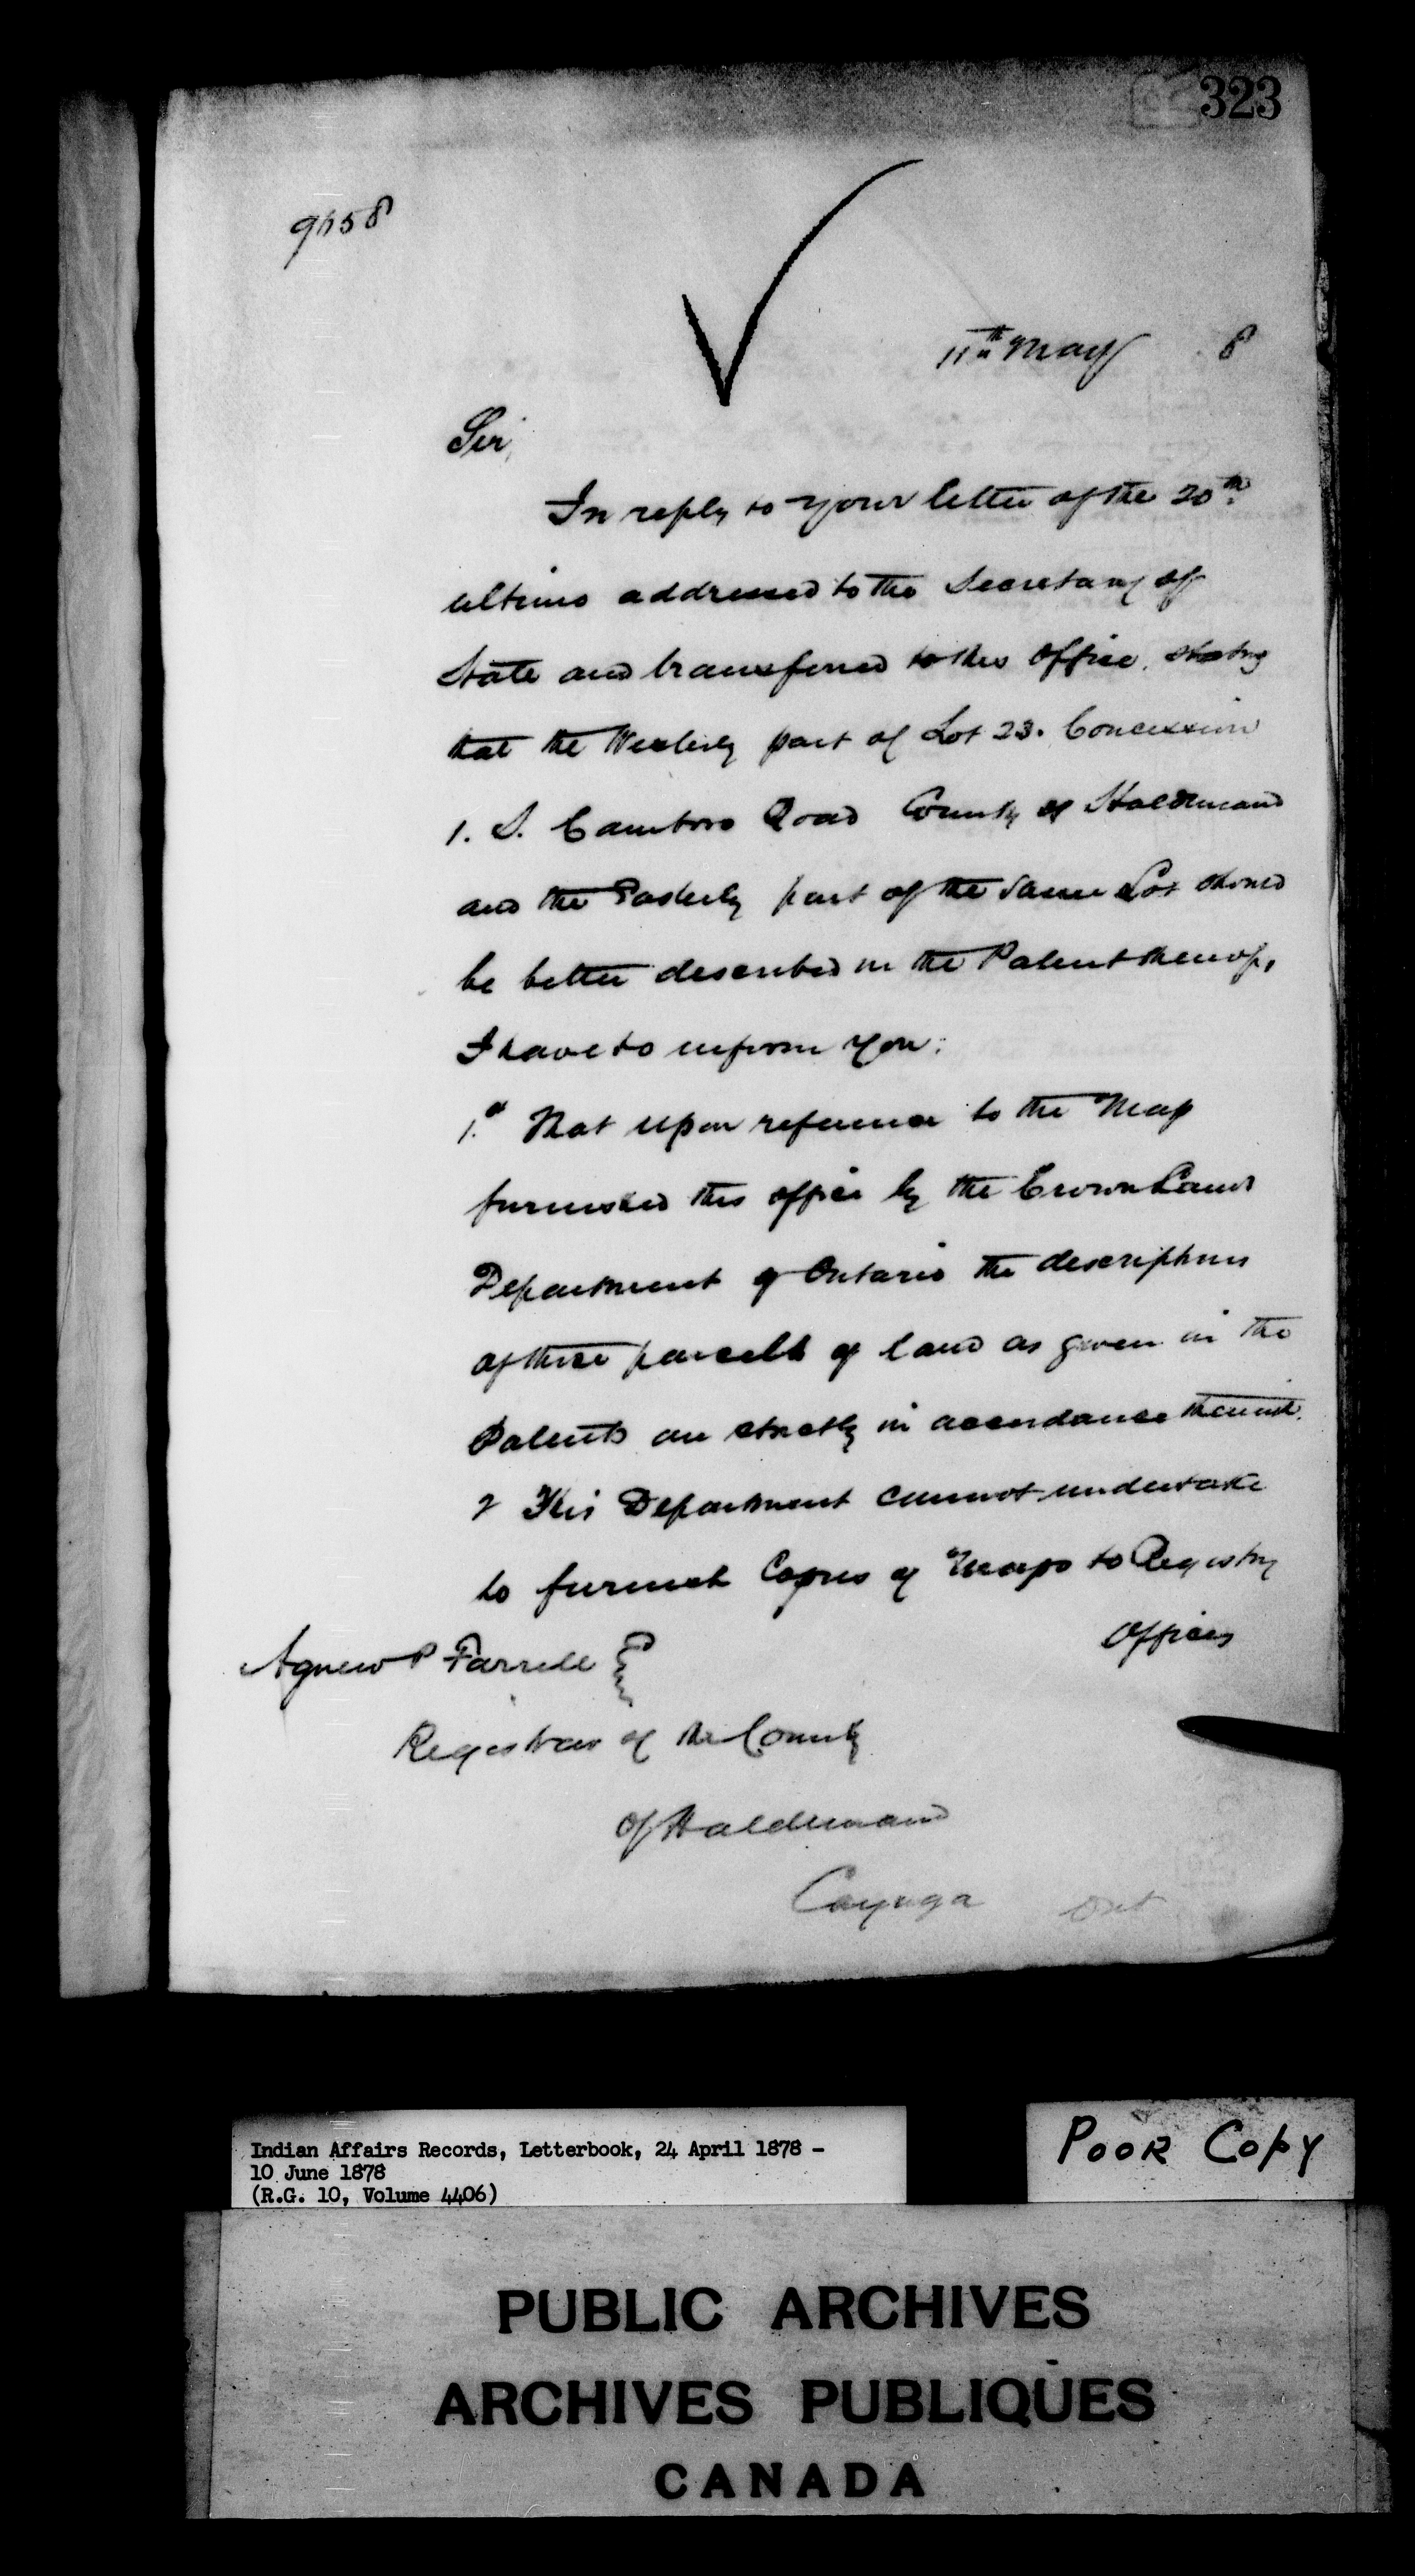 323
9658
11th May 8
Sir,
In reply to your letter of the 20th
ultimo addressed to the Secretary of
State and transferred to this Office, stating
that the Westerly part of Lot 23. Concession
1. S. Canboro Road County of Haldimand
and the Easterly part of the same Lot should
be better described in the Patent thereof,
I have to inform you:
1.st That upon reference to the Map
furnished this office by the Crown Lands
Department of Ontario the descriptions
of these parcels of land as given in the
Patents are strictly in accordance therewith.
2 This Department cannot undertake
to furnish Copies of Maps to Registry
Offices
Agnew P Farrell Esqr
Registrar of the County
of Haldimand
Cayuga Ont
Indian Affairs Records, Letterbook, 24 April 1878 -
10 June 1878
(R.G. 10, Volume 4406)
POOR COPY
PUBLIC ARCHIVES
ARCHIVES PUBLIQUES
CANADA